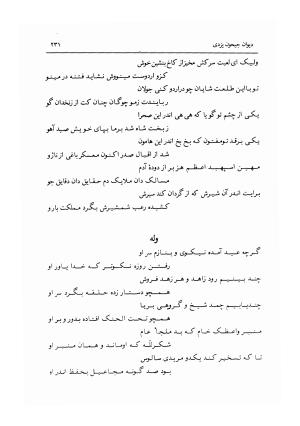 دیوان جیحون یزدی
۲۳۱
ولیک ای لعبت سرکش مخیز از کاخ بنشین خوش
کزو اردوست مینووش نشاید فتنه در مینو
تو با این طلعت شایان چو در اردو کنی جولان
ربایندت ز مو چوگان چنان کت از زنخدان گو
یکی از چشم تو گویا که هی هی اندر این صحرا
زبخت شاه شد صد برما بپای خویش صید آهو
یکی برقد تو مفتون که بخ بخ این هامون
شد از اقبال صدر اکنون معسکر باغی از ناژو
مهین اسپهبد اعظم هژبر از دودهٔ آدم
مسالک دان ملایک دم حقایق دان دقایق جو
برایت اندر آن شیرش که از گردان کند سیرش
کشیده رعب شمشیرش بگرد مملکت بارو
وله
گر چه عید آمده نیکوی و بنازم سر او
رفتن روزه نکوتر که خدا یاور او
چند بینیم رود زاهد و هر زهد فروش
همچو دستار زده حلقه بگرد سر او
چند یابیم چمد شیخ و گروهی بریا
همچو تحت الحنک افتاده بدور و بر او
منبر واعظک خام که بد ملجأ عام
شکرلله که او ماند و همان منبر او
تا که تسخیر کند یکدو مریدی سالوس
بود صد گونه مجاعیل بحفظ اندر او